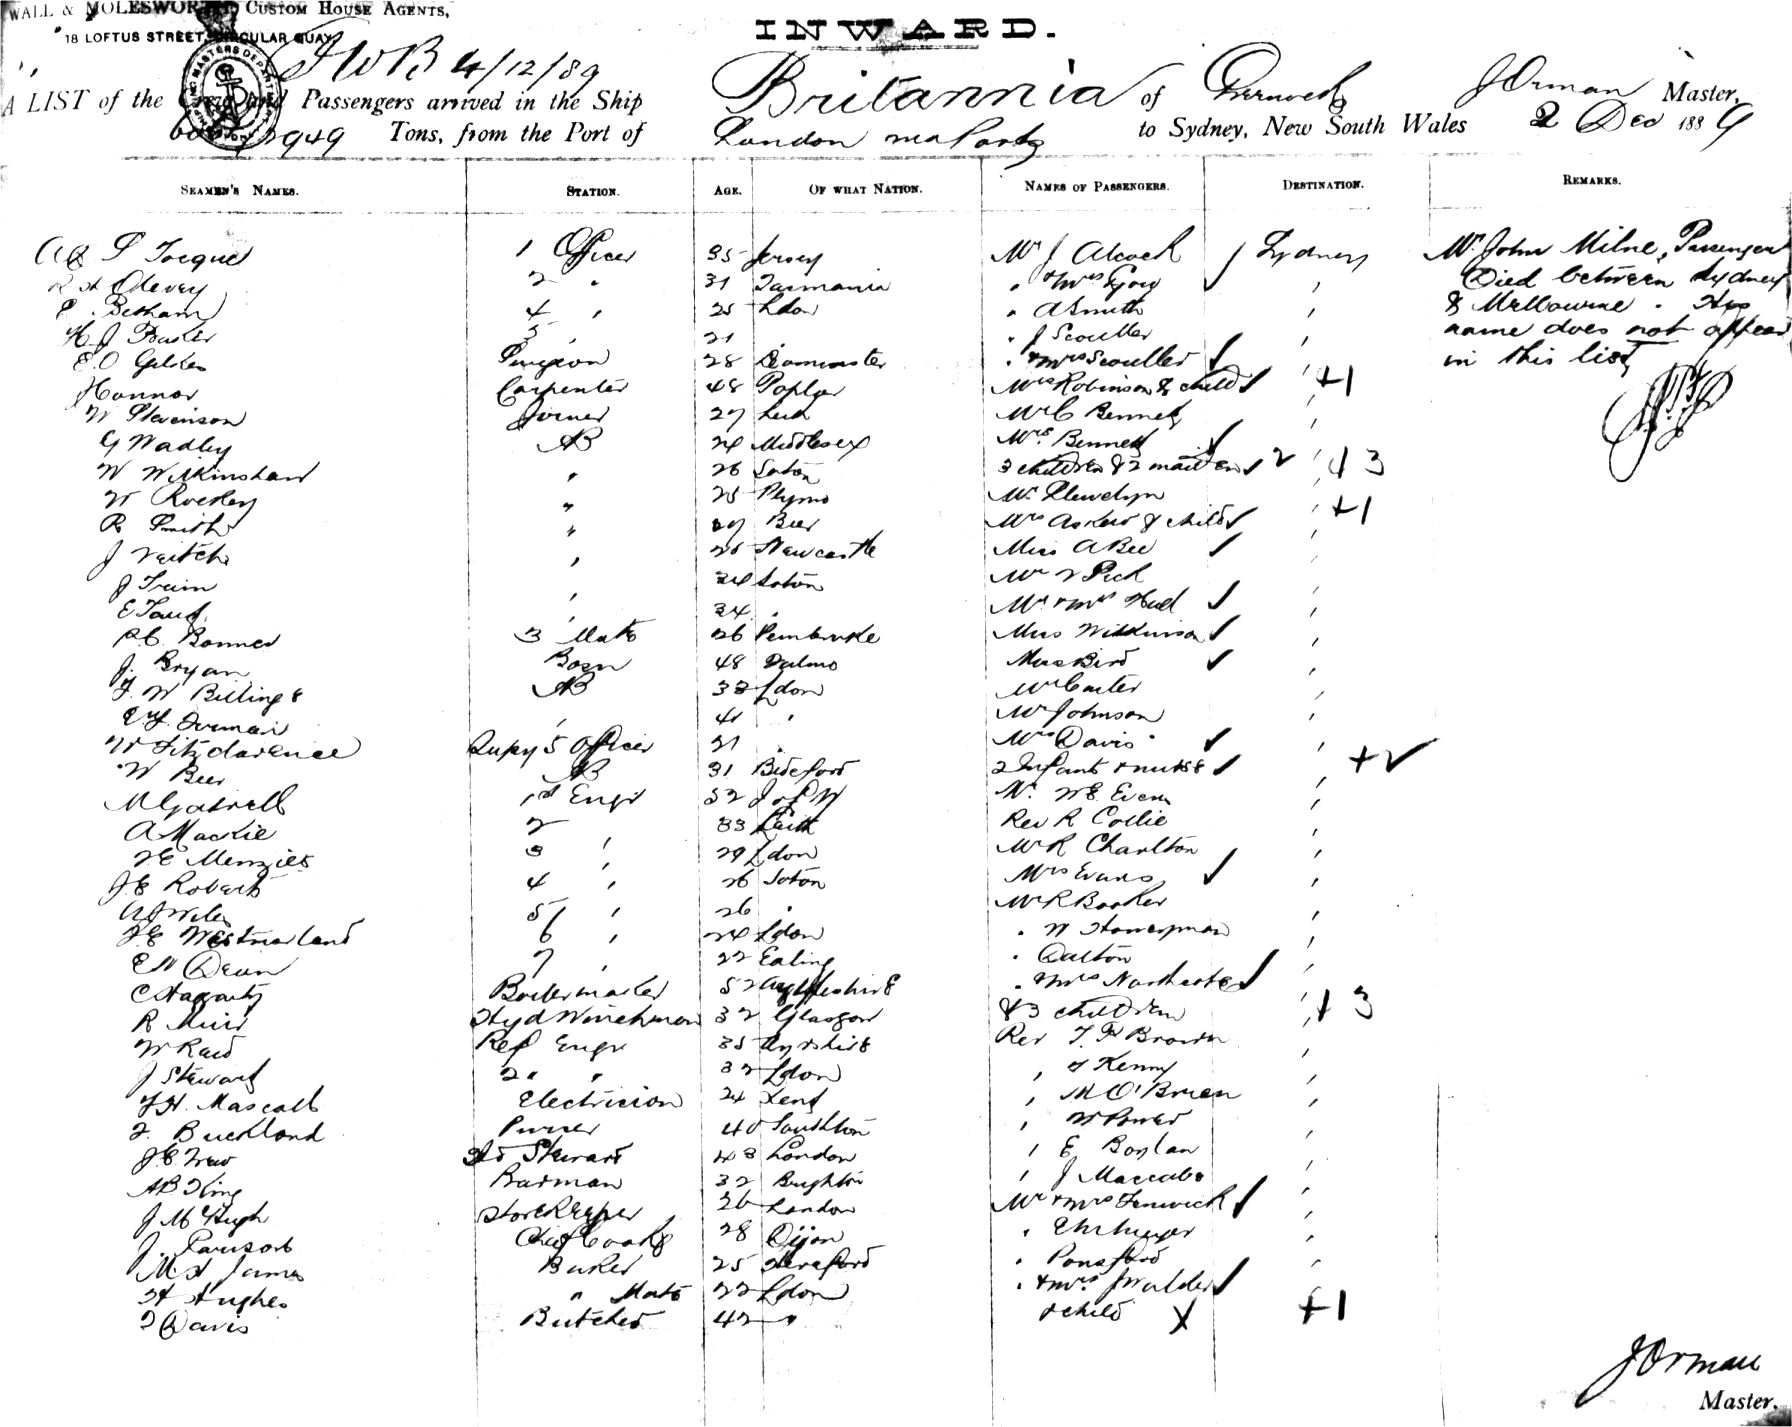 WALL & MOLESWORTH CUSTOM HOUSE AGENTS,
18 LOFTUS STREET, CIRCULAR QUAY
INWARD.
4/12/89
A LIST of the Crew and Passengers arrived in the Ship Britannia of Greenock J Orman Master,
Tons, from the Port of London via Ports to Sydney, New South Wales 2 Dec 1889
SEAMEN'S NAMES. STATION. AGE. OF WHAT NATION. NAMES OF PASSENGERS. DESTINATION. REMARKS.
1 Officer 35 Jersey Mr J Alcock Sydney Mr John Milne, Passenger
2 " 31 Tasmania " & Mrs Died between Sydney
4 " 25 Ldon " A Smith & Melbourne. His
H J Baker 5 " 21 " J Scoullar name does not appear
Surgeon 28 " & Mrs Scoullar in this list
Connor Carpenter 48 Poplar Mrs Robinson & child +1
W Stevenson Joiner 27 Mr C Bennett
G Wadley AB 24 Middlesex Mrs Bennett
W Wilkinshaw " 26 Soton 3 children & 2 maidens 2 +3
W Rockey " 25 Plymo Mr Llewelyn
R Smith " 27 Beer Mrs Askew & child +1
J Veitch " Newcastle Miss A Bee
J Train " 24 Soton Mr
" 34 " Mr & Mrs
P.C. Bonner 3 Mate 26 Pembroke Miss Wilkinson
J. Bryan Bosn 48 Miss Bird
F. W Billings AB 33 Ldon Mr Carter
" 41 " Mr Johnson
W Fitzclarence Supy 5 Officer 21 " Mrs Davis
W Beer AB 31 Bideford 2 Infants & nurse +2
1st Engr 52 I of W Mr W E Evans
A Mackie 2 " 33 Leith Rev R Collie
Menzies 3 " 29 Ldon Mr R Charlton
J E Roberts 4 " 26 Soton Mrs Evans
5 " 26 " Mr R Booker
J E Westmorland 6 " 24 Ldon " W Honeyman
E W Dean 7 " 22 Ealing " Dalton
C Hagarty Boilermaker 52 " & Mrs Northcote
R Muir Hyd Winchman 32 Glasgow & 3 children +3
W Raid Ref Engr 35 Ayrshire Rev T. F Brown
J Stewart 2 " " 32 Ldon " J Kenny
F H. Mascall Electrician 24 Kent " M O'Brien
F. Buckland Purser 40 Southton " W Power
J. E. Trew Hd Steward 43 London " E Boylan
A B King Barman 32 Brighton " J Maccabe
J McHugh Storekeeper 26 London Mr & Mrs Fenwick
Chief Cook 28 Dijon "
M H James Baker 25 Hereford " Ponsford
H Hughes " Mate 22 Ldon " & Mrs J Walder
Davis Butcher 42 " & child X +1
J Orman
Master.